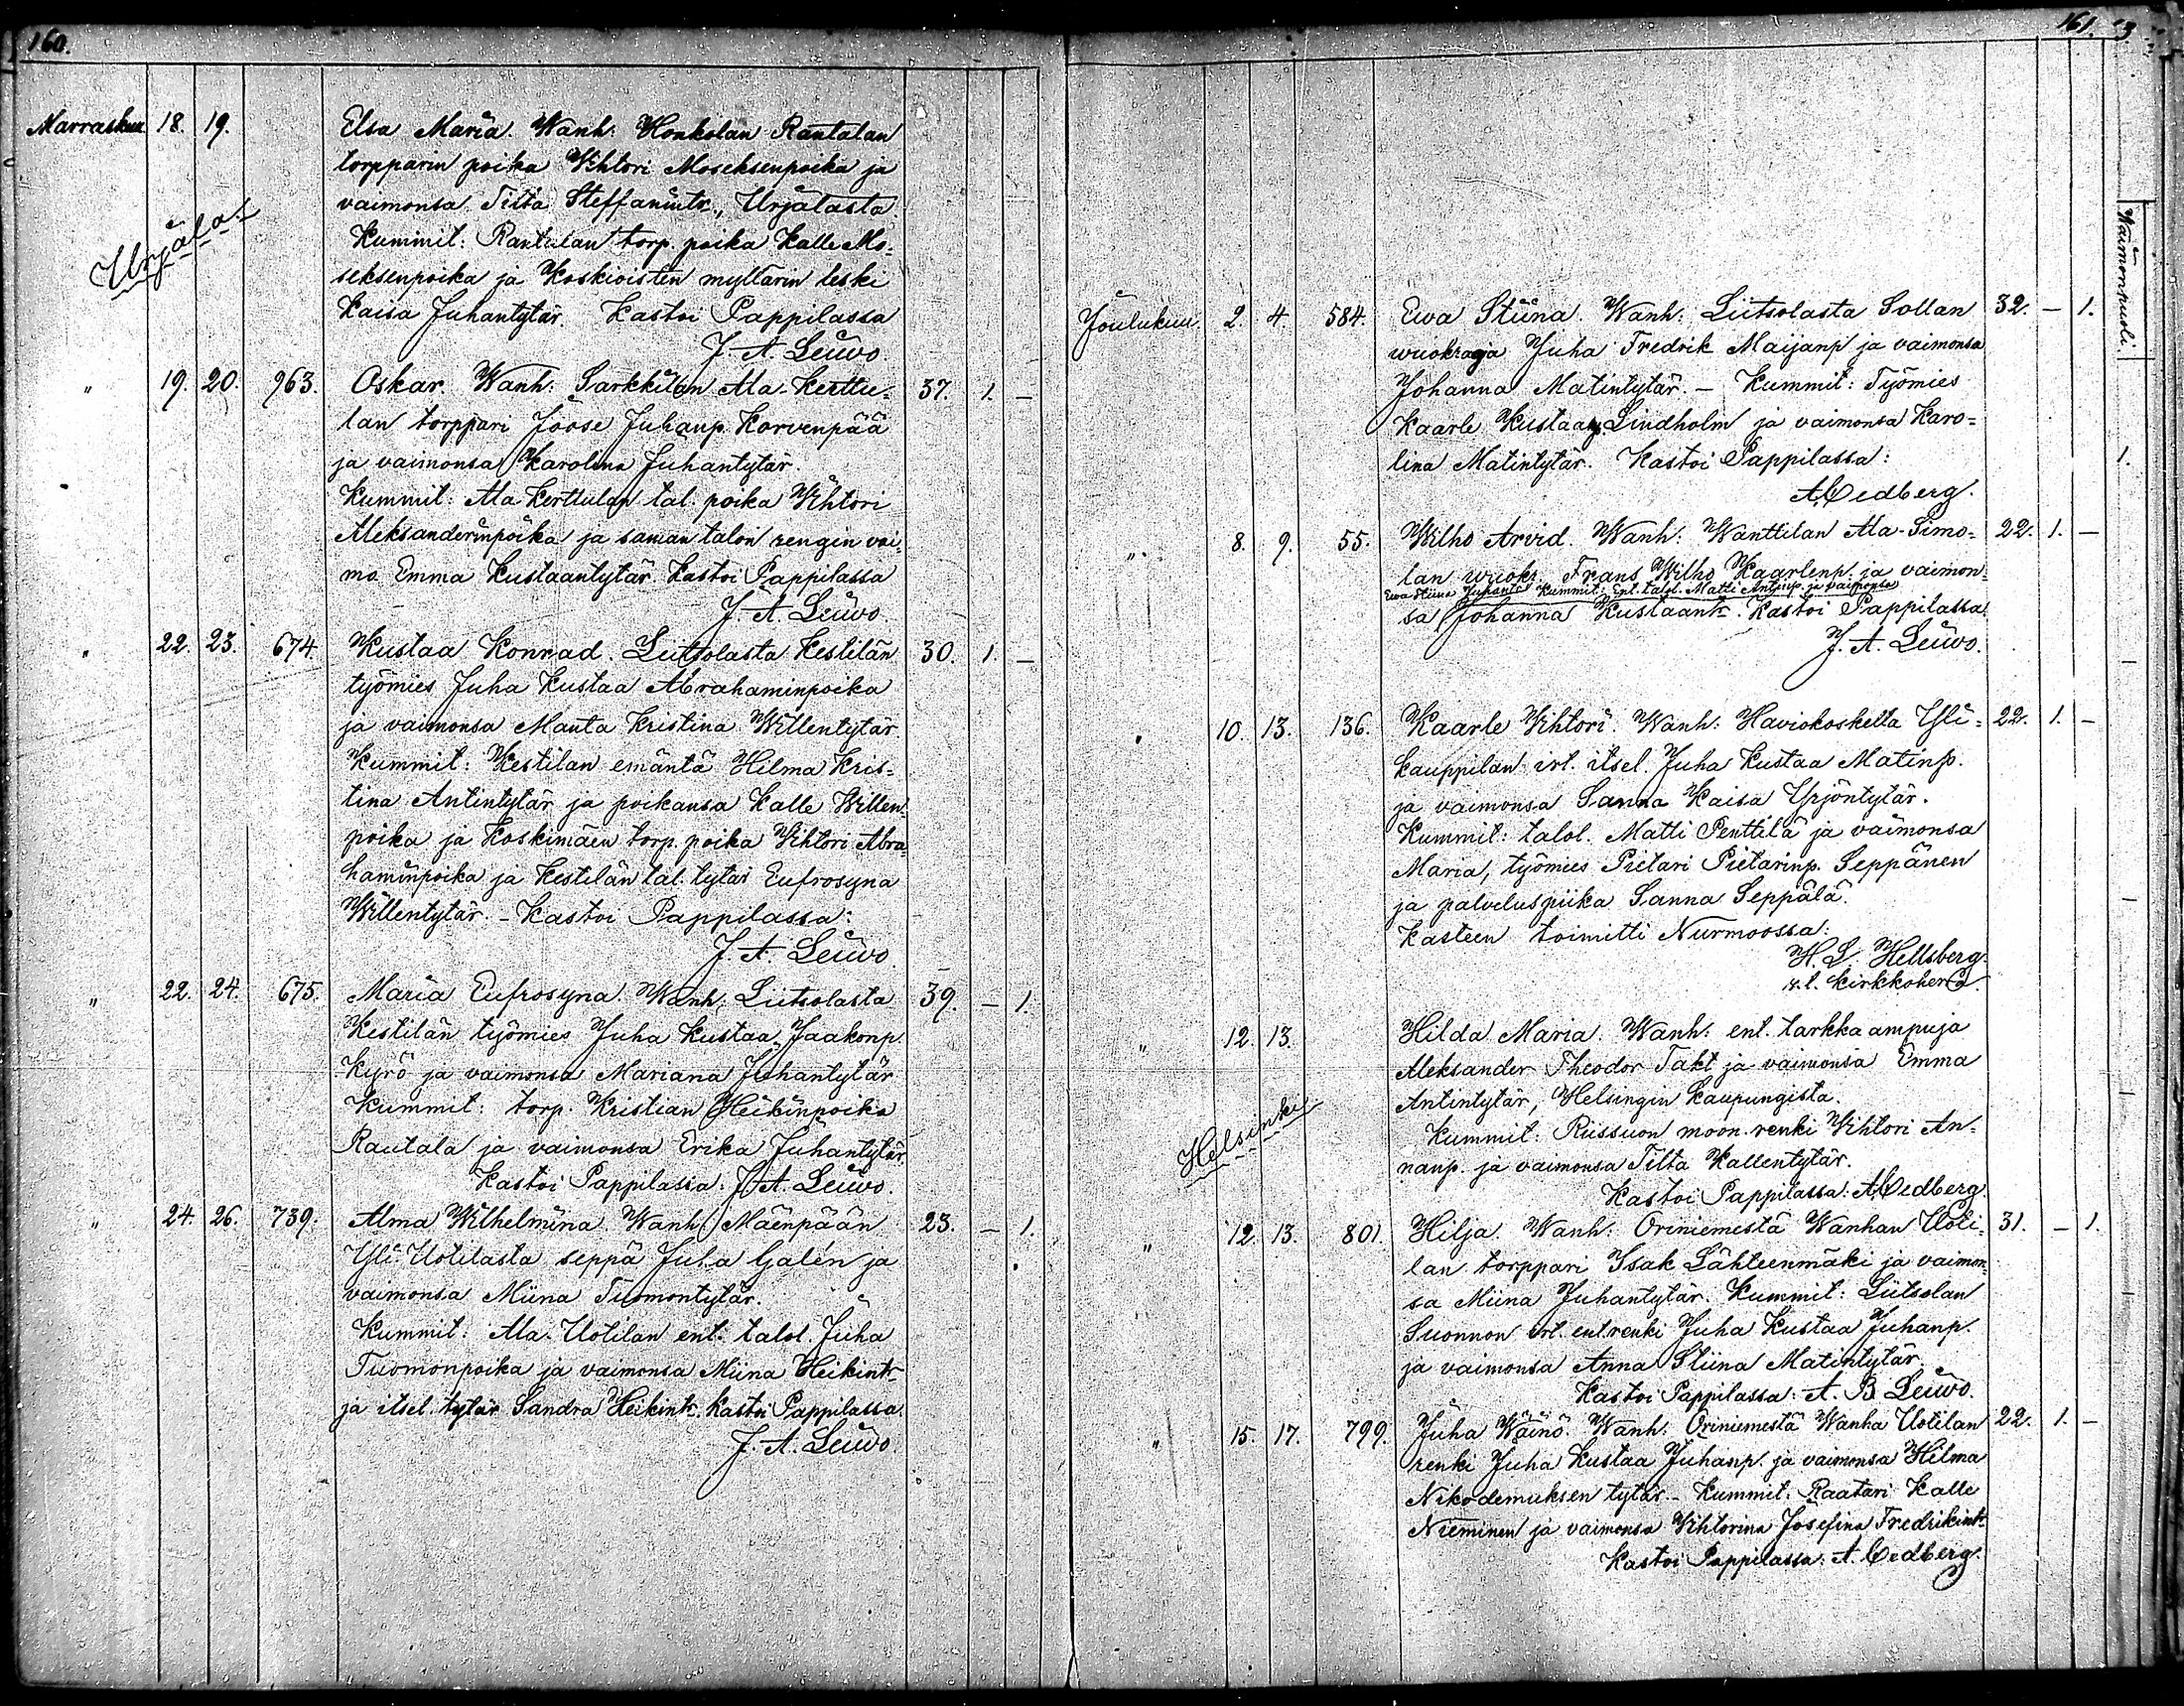 160.
Marraskuu 18. 19. Elsa Maria. Wanh: Honkolan Rantalan
torpparin poika Vihtori Moseksenpoika ja
vaimonsa Tilta Steffanintr., Urjalasta
Urjala:
Kummit: Rantalan torp. poika Kalle Mo=
seksenpoika ja Koskioisten myllärin leski
Kaisa Juhantytär. Kastoi Pappilassa
J. A. Leiwo.
" 19. 20. 963. Oskar. Wanh: Sarkkilan Ala-Kerttu= 37. 1. –
lan torppari Joose Juhanp. Korvenpää
ja vaimonsa Karolina Juhantytär.
Kummit: Ala Kerttulan tal. poika Vihtori
Aleksanderinpoika ja saman talon rengin vai=
mo Emma Kustaantytär. Kastoi Pappilassa
J. A. Leiwo.
" 22. 23. 674. Kustaa Konrad. Liitsolasta Kestilän 30. 1. –
työmies Juha Kustaa Abrahaminpoika
ja vaimonsa Manta Kristina Willentytär
Kummit: Kestilan emäntä Hilma Kris=
tina Antintytär ja poikansa Kalle Willen=
poika ja Koskimäen torp. poika Vihtori Abra=
haminpoika ja Kestilän tal. tytär Eufrosyna
Willentytär. – Kastoi Pappilassa:
J. A. Leiwo
" 22. 24. 675. Maria Eufrosyna. Wanh: Liitsolasta 39. – 1.
Kestilän työmies Juha Kustaa Jaakonp.
Kyrö ja vaimonsa Mariana Juhantytär
Kummit: torp. Kristian Heikinpoika
Rautala ja vaimonsa Erika Juhantytär.
Kastoi Pappilassa: J. A. Leiwo.
" 24. 26. 739. Alma Wilhelmina. Wanh: Mäenpään 23. – 1.
Yli-Uotilasta seppä Juha Galén ja
vaimonsa Miina Tuomontytär.
Kummit: Ala-Uotilan ent. talol. Juha
Tuomonpoika ja vaimonsa Miina Heikintr
ja itsel. tytär Sandra Heikintr. Kastoi Pappilassa.
J. A. Leiwo.
161.
Waimonpuoli.
Joulukuu. 2. 4. 584. Ewa Stiina. Wanh: Liitsolasta Sollan 32. – 1.
wuokraaja Juha Fredrik Maijanp ja vaimonsa
Johanna Matintytär. – Kummit: Työmies
Kaarle Kustaanp. Lindholm ja vaimonsa Karo=
lina Matintytär. Kastoi Pappilassa:
A. Cedberg.
" 8. 9. 55. Wilho Arvid. Wanh: Wanttilan Ala-Simo= 22. 1. –
lan wuokr. Frans Wilho Kaarlenp. ja vaimon=
Ewa Stiina Juhantr Kummit: Ent. talol. Matti Antinp. ja vaimonsa
sa Johanna Kustaantr. Kastoi Pappilassa:
J. A. Leiwo.
" 10. 13. 136. Kaarle Vihtori. Wanh: Haviokoskelta Yli= 22. 1. –
kauppilan irt. itsel. Juha Kustaa Matinp.
ja vaimonsa Sanna Kaisa Yrjöntytär.
Kummit: talol. Matti Penttilä ja vaimonsa
Maria, työmies Pietari Pietarinp. Seppänen
ja palveluspiika Sanna Seppälä.
Kasteen toimitti Nurmoossa:
H. L. Hellsberg.
v. t. kirkkoherra.
" 12. 13. Hilda Maria. Wanh: ent. tarkka ampuja
Aleksander Theodor Takt ja vaimonsa Emma
Antintytär, Helsingin kaupungista.
Helsinki
Kummit: Riissuon moon. renki Vihtori An=
nanp. ja vaimonsa Tilta Kallentytär.
Kastoi Pappilassa: A. Cedberg.
" 12. 13. 801. Hilja. Wanh: Oriniemestä Wanhan Uoti= 31. – 1.
lan torppari Isak Lähteenmäki ja vaimon=
sa Miina Juhantytär. Kummit: Liitsolan
Suonnon irt. ent. renki Juha Kustaa Juhanp.
ja vaimonsa Anna Stiina Matintytär.
Kastoi Pappilassa: A. B. Leiwo.
" 15. 17. 799. Juha Wäinö. Wanh: Oriniemestä Wanha Uotilan 22. 1. –
renki Juha Kustaa Juhanp. ja vaimonsa Hilma
Nikodemuksen tytär. – Kummit: Raatari Kalle
Nieminen ja vaimonsa Vihtorina Josefina Fredrikintr
Kastoi Pappilassa: A. Cedberg.